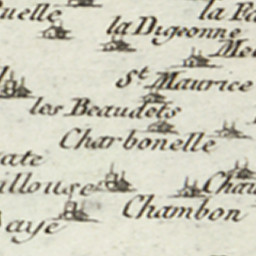 uelle
la Digeonne
St. Maurice
les Beaudets
Charbonelle
ate
illouse
Chambon
aye